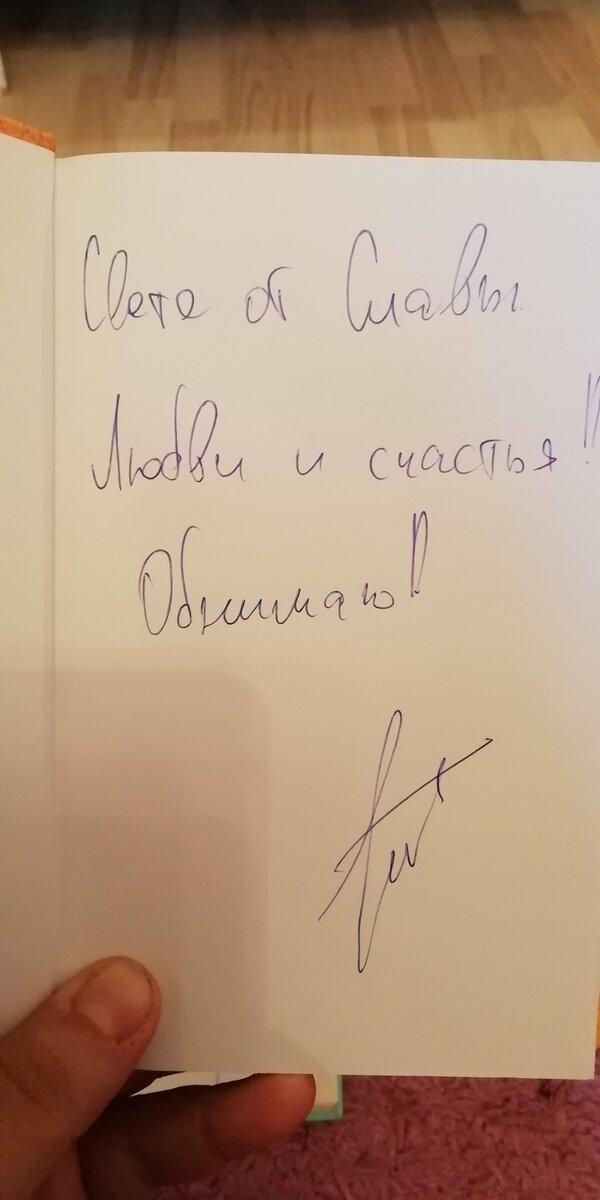 Свете от Славы
Любви и счастья!!
Обнимаю!